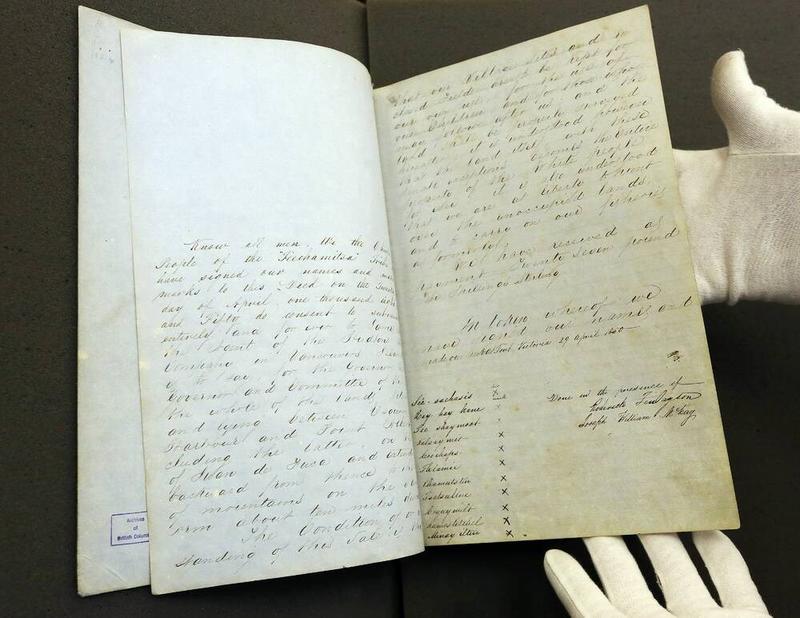 Know all men, We the
People of the "Teechamitsa" Tribe
have signed our names and made
marks to this Deed on the Twenty
day of April, one thousand
and Fifty do consent to
entirely and for ever to
the Agent of the Hudson
Company in Vancouvers
is to say, for the Governor
Governor and Committee of the
the whole of the lands
and lying between
Harbour and Point
cluding the latter, on
of Juan de Fuca and
backward from thence to
of mountains on the
orm about ten miles
The Condition of
standing of this Sale is
Archives
of
British Colum
that our Village Sites and
closed Fields are to be kept for
our own use, for the use of
our Children, and for those who
may follow after us; and the
land shall be properly surveyed
hereafter; it is understood however
that the land itself with these
small exceptions becomes the Entire
property of the White people
for ever; it is also understood
that we are at liberty to hunt
over the unoccupied lands,
and to carry on our fisheries
as formerly.
We have received as
payment Twenty seven pounds
Ten Shillings Sterling
In token whereof we
have signed our names and
made our marks at Fort Victoria 29 April 1850
Done in the presence of
Joseph William McKay
See-sachasis X
Hay hay kane
Pee shaymoot
Kalsaymit X
Coochaps X
Thlamie X
Chamutstin X
Tsatsulluc X
Hoquymilt X
Kamostitchel X
Minay iltin X